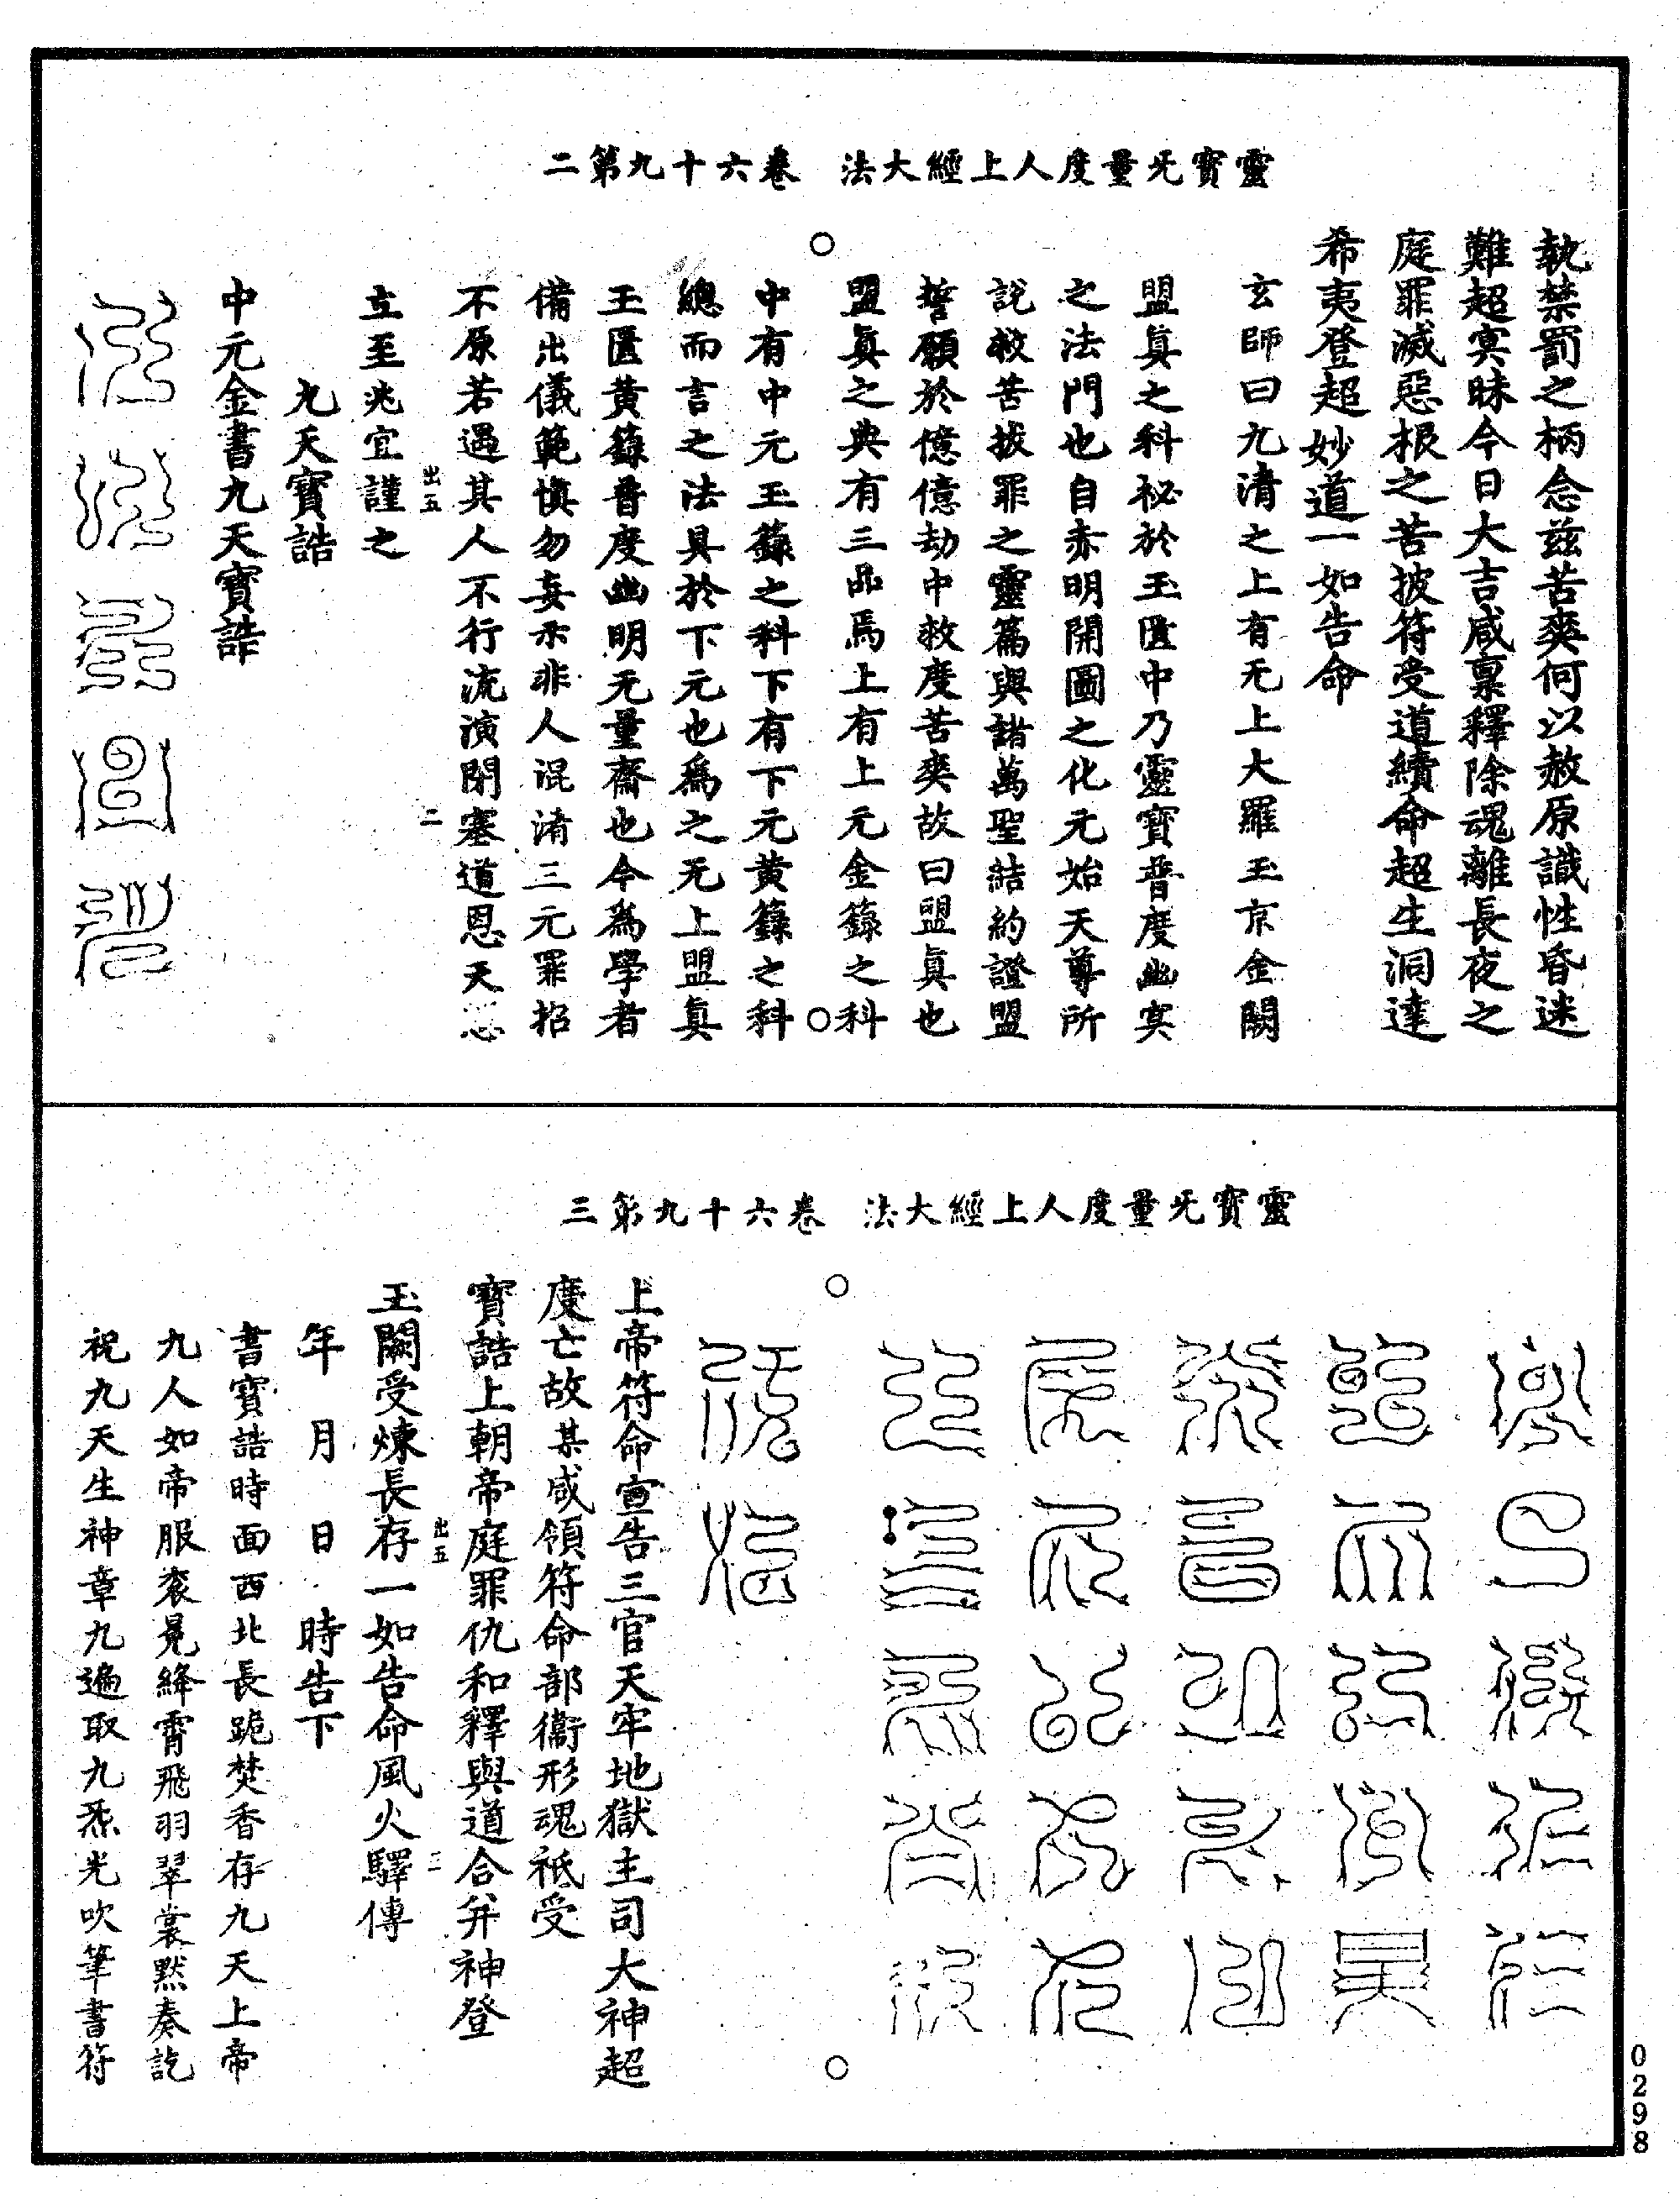 靈寶无量度人上經大法　卷六十九第二
執禁罰之柄念兹苦爽何以赦原識性昏迷
難超冥昧今日大吉咸稟釋除魂離長夜之
庭罪滅惡根之苦披符受道續命超生洞達
希夷登超妙道一如告命
玄師曰九清之上有无上大羅玉京金闕
盟真之科祕於玉匱中乃靈寶普度幽冥
之法門也自赤明開圖之化元始天尊所
說救苦拔罪之靈篇與諸萬聖結約證盟
誓願於億億劫中救度苦爽故曰盟真也
盟真之典有三品焉上有上元金籙之科
中有中元玉籙之科下有下元黃籙之科
總而言之法具於下元也爲之无上盟真
玉匱黃籙普度幽明无量齋也今爲學者
備出儀範慎勿妄示非人混淆三元罪招
不原若遇其人不行流演閉塞道恩天
出五　二
立至兆宜謹之
九天寶誥
中元金書九天寶誥
靈寶无量度人上經大法　卷六十九第三
上帝符命宣告三官天牢地獄主司大神超
度亡故某咸領符命部衞形魂祇受
寶誥上朝帝庭罪仇和釋與道合并神登
出五　三
玉闕受煉長存一如告命風火驛傳
年　月　日　時告下
書寶誥時面西北長跪焚香存九天上帝
九人如帝服衮冕絳霄飛羽翠裳默奏訖
祝九天生神章九遍取九炁光吹筆書符
0298